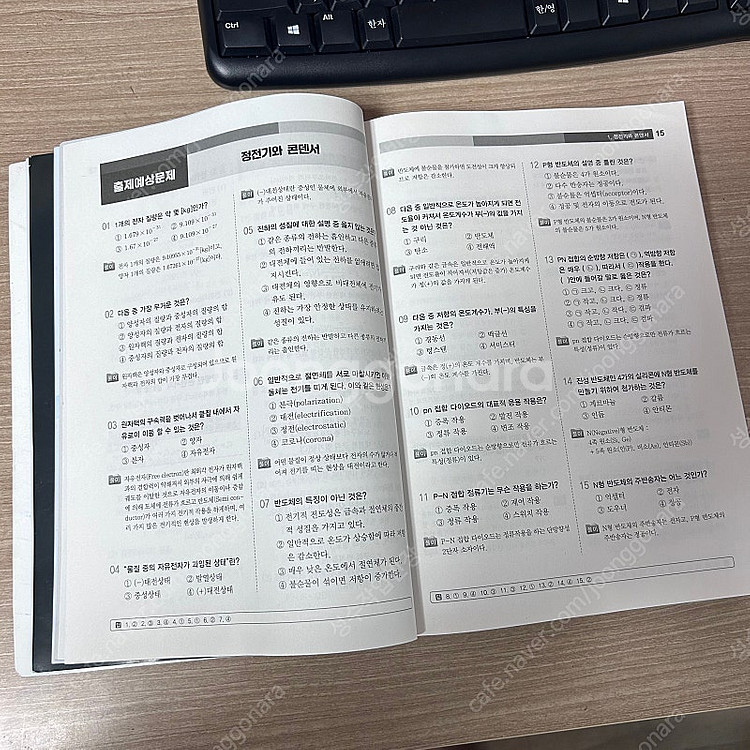 Ctrl
Alt
한자
한/영
출제예상문제
정전기와 콘덴서
01 1개의 전자 질량은 약 몇 [kg]인가?
① 1.679×10⁻³¹ ② 9.109×10⁻³¹
③ 1.67×10⁻²⁷ ④ 9.109×10⁻²⁷
풀이
02 다음 중 가장 무거운 것은?
① 양성자의 질량과 중성자의 질량의 합
② 양성자의 질량과 전자의 질량의 합
③ 원자핵의 질량과 전자의 질량의 합
④ 중성자의 질량과 전자의 질량의 합
풀이 원자핵은 양성자와 중성자로 구성되어 있으므로 원
자핵과 전자의 합이 가장 무겁다.
03 원자핵의 구속력을 벗어나서 물질 내에서 자
유로이 이동 할 수 있는 것은?
① 중성자 ② 양자
③ 분자 ④ 자유전자
풀이 자유전자(Free electron)란 최외각 전자가 원자핵
과의 결합력이 약해져서 외부의 자극에 의해 쉽게
궤도를 이탈한 것으로 자유전자의 이동이나 증감
에 의해 도체에 전류가 흐르고 반도체(Semi con-
ductor)가 여러 가지 전기적 작용을 하게되며, 여
러 가지 많은 전기적인 현상을 발생하게 한다.
04 "물질 중의 자유전자가 과잉된 상태"란?
① (−)대전상태 ② 발열상태
③ 중성상태 ④ (+)대전상태
풀이 (−)대전상태란 중성인 물체에 외부에서
가 주어진 상태이다.
05 전하의 성질에 대한 설명 중 옳지 않은 것은?
① 같은 종류의 전하는 흡인하고 다른 종류
의 전하끼리는 반발한다.
② 대전체에 들어 있는 전하를 없애려면 접
지시킨다.
③ 대전체의 영향으로 비대전체에 전기가
유도 된다.
④ 전하는 가장 안정한 상태를 유지하려는
성질이 있다.
풀이 같은 종류의 전하는 반발하고 다른 종류의 전하
라는 흡인한다.
06 일반적으로 절연체를 서로 마찰시키면 이들
물체는 전기를 띠게 된다. 이와 같은 현상은?
① 분극(polarization)
② 대전(electrification)
③ 정전(electrostatic)
④ 코로나(corona)
풀이 어떤 물질이 정상 상태보다 전자의 수가 많거나 적
어져 전기를 띠는 현상을 대전이라고 한다.
07 반도체의 특징이 아닌 것은?
① 전기적 전도성은 금속과 절연체의 중간
적 성질을 가지고 있다.
② 일반적으로 온도가 상승함에 따라 저항
은 감소한다.
③ 매우 낮은 온도에서 절연체가 된다.
④ 불순물이 섞이면 저항이 증가한다.
답 1.② 2.③ 3.④ 4.① 5.① 6.② 7.④
1. 정전기와 콘덴서 15
풀이 반도체에 불순물을 첨가하면 도전성이 크게 향상되
므로 저항은 감소한다.
08 다음 중 일반적으로 온도가 높아지게 되면 전
도율이 커져서 온도계수가 부(−)의 값을 가지
는 것이 아닌 것은?
① 구리 ② 반도체
③ 탄소 ④ 전해액
풀이 구리와 같은 금속은 일반적으로 온도가 높아지게
되면 전도율이 작아져서(저항값은 증가) 온도계수
가 정(+)의 값을 가지게 된다.
09 다음 중 저항의 온도계수가, 부(−)의 특성을
가지는 것은?
① 경동선 ② 백금선
③ 텅스텐 ④ 서미스터
풀이 금속은 정(+)의 온도 계수를 가지며, 반도체는 부
(−)의 온도 계수를 가진다.
10 pn 접합 다이오드의 대표적 응용 작용은?
① 증폭 작용 ② 발진 작용
③ 정류 작용 ④ 변조 작용
풀이 pn 접합 다이오드는 순방향으로만 전류가 흐르는
특성(정류)가 있다.
11 P−N 접합 정류기는 무슨 작용을 하는가?
① 증폭 작용 ② 제어 작용
③ 정류 작용 ④ 스위치 작용
풀이 P−N 접합 다이오드는 정류작용을 하는 단방향성
2단자 소자이다.
12 P형 반도체의 설명 중 틀린 것은?
① 불순물은 4가 원소이다.
② 다수 반송자는 정공이다.
③ 불순물을 억셉터(acceptor)이다.
④ 정공 및 전자의 이동으로 전도가 된다.
풀이 P형 반도체의 불순물은 3가 원소이며, N형 반도체
의 불순물은 5가 원소이다.
13 PN 접합의 순방향 저항은 ( ㉠ ), 역방향 저항
은 매우 ( ㉡ ), 따라서 ( ㉢ )작용을 한다.
( )안에 들어갈 말로 옳은 것은?
풀이 pn 접합 다이오드는 순방향으로만 전류가 흐르는
특성(정류)가 있다.
14 진성 반도체인 4가의 실리콘에 N형 반도체를
만들기 위하여 첨가하는 것은?
① 게르마늄 ② 갈륨
③ 인듐 ④ 안티몬
풀이 N(Negative)형 반도체 :
4족 원소(Si, Ge)
+5족 원소(인(P), 비소(As), 안티몬(Sb))
15 N형 반도체의 주반송자는 어느 것인가?
① 억셉터 ② 전자
③ 도우너 ④ 정공
풀이 N형 반도체의 주반송자는 전자고, P형 반도체의
주반송자는 정공이다.
답 8.① 9.④ 10.③ 11.③ 12.① 13.② 14.④ 15.②
joonggonara
cafe.naver.com/joonggonara